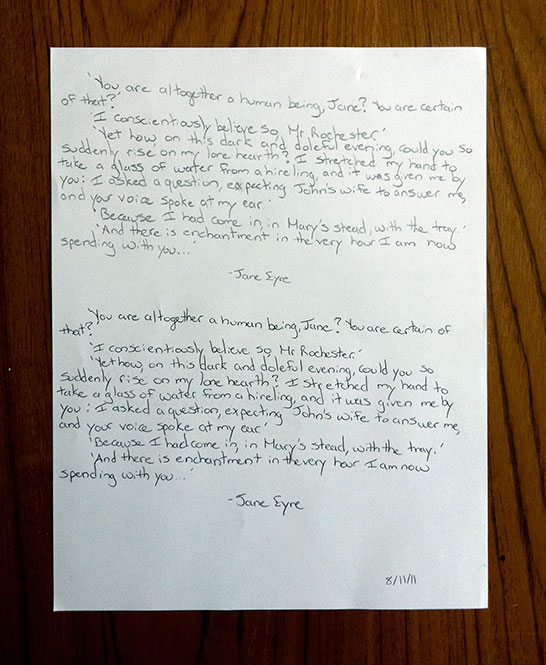 'You are altogether a human being, Jane? You are certain
of that?'
'I conscientiously believe so, Mr Rochester.'
'Yet how, on this dark and doleful evening, could you so
suddenly rise on my lone hearth? I stretched my hand to
take a glass of water from a hireling, and it was given me by
you: I asked a question, expecting John's wife to answer me,
and your voice spoke at my ear.'
'Because I had come in, in Mary's stead, with the tray.'
'And there is enchantment in the very hour I am now
spending with you...'
-Jane Eyre
'You are altogether a human being, Jane? You are certain of
that?'
'I conscientiously believe so, Mr Rochester.'
'Yet how, on this dark and doleful evening, could you so
suddenly rise on my lone hearth? I stretched my hand to
take a glass of water from a hireling, and it was given me by
you: I asked a question, expecting John's wife to answer me,
and your voice spoke at my ear.'
'Because I had come in, in Mary's stead, with the tray.'
'And there is enchantment in the very hour I am now
spending with you...'
-Jane Eyre
8/11/11